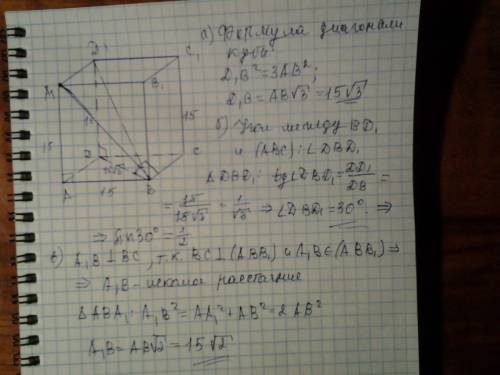 а) Формула диагонали
куба
D₁B² = 3AB²;
D₁B = AB√3 = 15√3
б) Угол между BD₁
и (ABC): ∠DBD₁
ΔDBD₁: tg∠DBD₁ = DD₁/DB =
= 15/15√2 = 1/√3 ⇒ ∠DBD₁ = 30°. ⇒
⇒ sin30° = 1/2
в) A₁B ⊥ BC, т.к. BC ⊥ (ABB₁) и A₁B ∈ (ABB₁) ⇒
⇒ A₁B - искомое расстояние
ΔABA₁: A₁B² = AA₁² + AB² = 2AB²
A₁B = AB√2 = 15√2
D₁
C₁
A₁
B₁
15
15
D
C
A
15
B